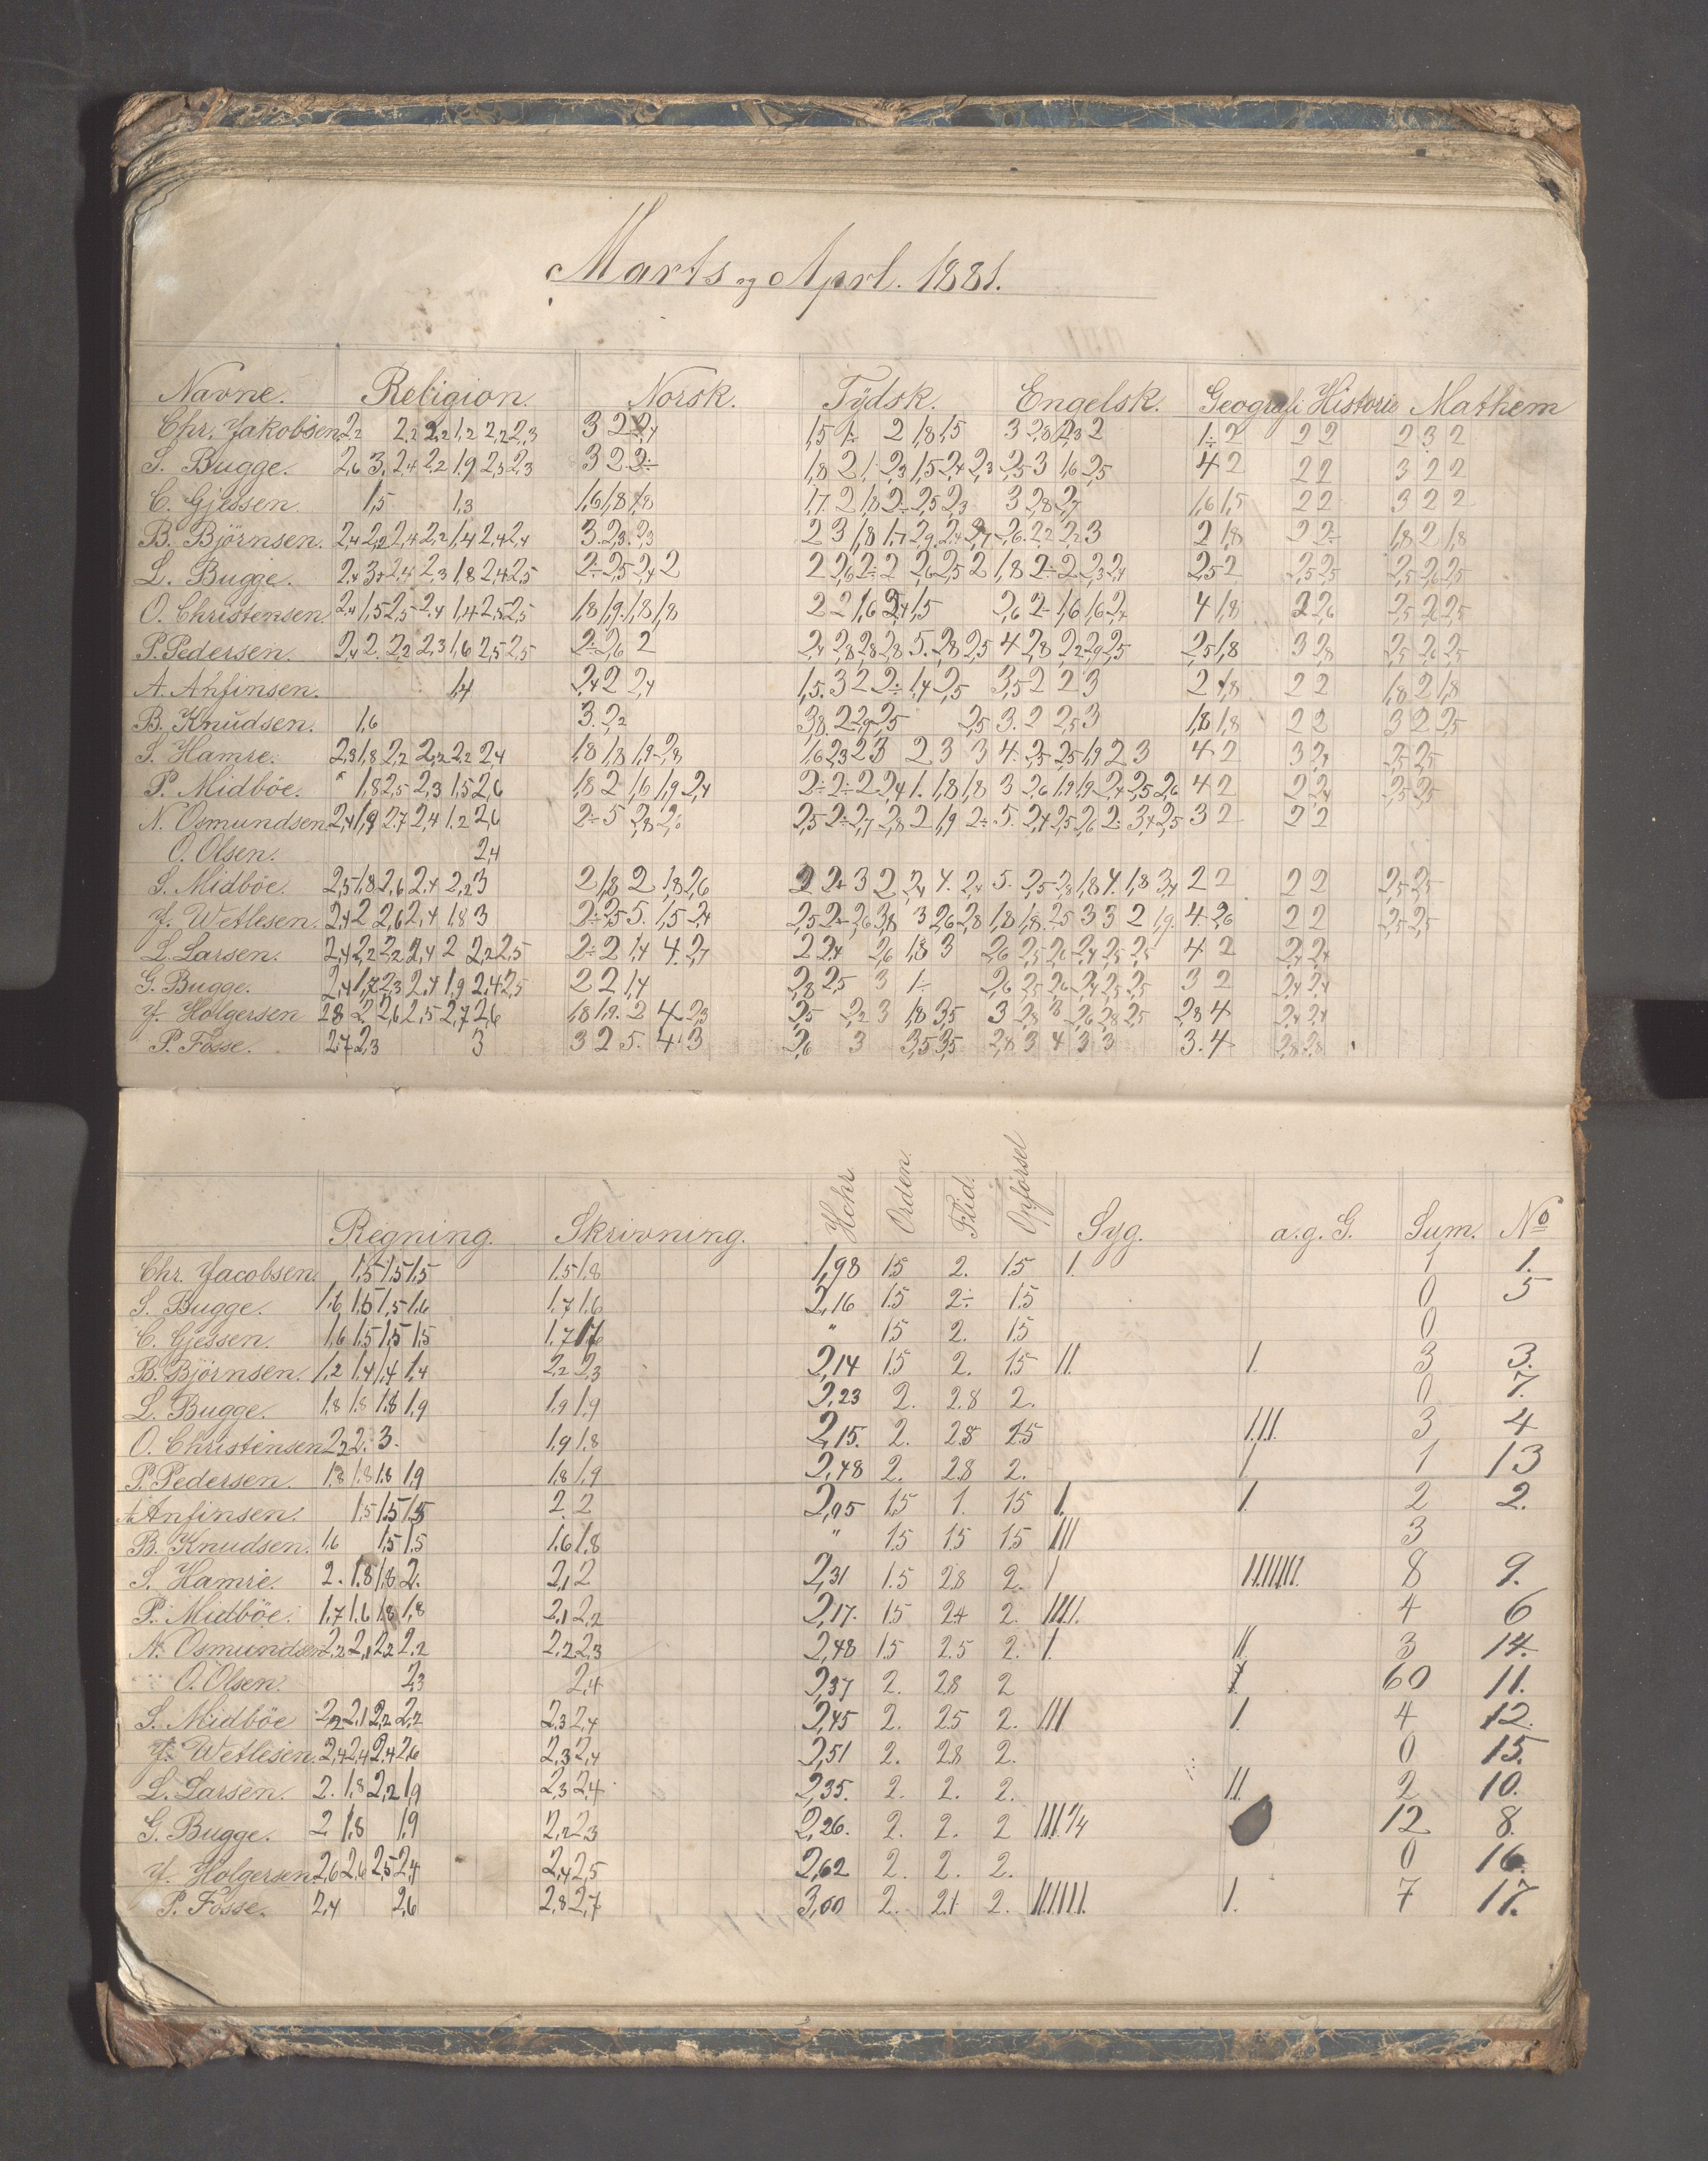 Marts og Aprl. 1881.
Navne. Religion. Norsk. Tÿdsk. Engelsk. Geografi Historie Mathem
Chr. Jakobsen 2,2 2,2 2,2 1,2 2,2 2,3 3 2 2,4 1,5 1÷ 2 1,8 1,5 3 2,8 2,3 2 1÷ 2 2 2 2 3 2
S. Bugge. 2,6 3. 2,4 2,2 1,9 2,3 2,3 3 2 2÷ 1,8 2 1. 2,3 1,5 2,4 2,3 2,5 3 1,6 2,5 4 2 2 2 3 2 2
C. Gjessen 1,5 1,3 1,6 1,8 1,8 1,7 2 1,8 2÷ 2,5 2,3 3 2,8 2,7 1,6 1,5 2 2 3 2 2
B. Björnsen. 2,4 2,2 2,4 2,2 1,4 2,4 2,4 3. 2,3. 2,3 2 3 1,8 1,7 2,9 2,4 2,7 2,6. 2,2 2,2 3 2 1,8 2 2÷ 1,8 2 1,8
L. Bugge. 2,4 3÷ 2,4 2,3 1,8 2,4 2,5 2÷ 2,5 2,4 2 2 2,6 2÷ 2 2,6 2,5 2 1,8 2÷ 2 2,3 2,4 2,5 2 2,5 2,5 2,5 2,6 2,5
O. Christensen. 2,4 1,5 2,5 2,4 1,4 2,5 2,5 1,8 1,9. 1,8 1,8 2 2 1,6 2,4 1,5 2,6 2÷ 1,6 1,6 2,4 4 1,8 2 2,6 2,5 2,6 2,5
P. Pedersen. 2,4 2. 2,2 2,3 1,6 2,5 2,5 2÷ 2,6 2 2,4 2,8 2,8 2,8 5. 2,8 2,5 4 2,8 2,2 2,9 2,5 2,5 1,8 3 2,8 2,5 2,6 2,5
A. Anfinsen. 1,4 2,4 2 2,4 1,5. 3 2 2÷ 1,4 2,5 3,5 2 2 3 2 1,8 2 2 1,8 2 1,8
B. Knŭdsen. 1,6 3. 2,2 3,8. 2 2,9 2,5 2,5 3. 2 2,5 3 1,8 1,8 2 2 3 2 2,5
S. Hamre. 2,3 1,8 2,2 2,2 2,2 2,4 1,8 1,8 1,9 2,8 1,6 2,3 2 3 2 3 3 4÷ 2,5 2,5 1,9 2 3 4 2 3 2,8 2,5 2,5
P. Midböe. " 1,8 2,5 2,3 1,5 2,6 1,8 2 1,6 1,9 2,4 2÷ 2÷ 2 2,4 1. 1,8 1,8 3 2,6 1,9 1,9 2,4 2,5 2,6 4 2 2 2,4 2,5 2,5
N. Osmundsen 2,4 1,9 2,7 2,4 1,2 2,6 2÷ 5 2,8 2,6 2,5 2÷ 2,7 2,8 2 1,9 2÷ 5. 2,4 2,5 2,6 2÷ 3,4 2,5 3 2 2 2
O. Olsen. 2,4
S. Midböe. 2,5 1,8 2,6 2,4 2,2 3 2 1,8 2 1,8 2,6 2 2,4 3 2 2,4 4. 2,4 5. 2,5 2,8 1,8 4. 1,8 3,4 2 2 2 2 2,5 2,5
J. Wetlesen. 2,4 2 2,6 2,4 1,8 3 2÷ 2,5 5. 1,5 2,4 2,5 2÷ 2,6 3,8 3 2,6 2,8 1,8 1,8. 2,5 3 3 2 1,9. 4. 2,6 2 2 2,5 2,5
L. Larsen. 2,4 2,2 2,2 2,4 2 2,2 2,5 2÷ 2 1,4 4. 2,7 2 2,4 2,6 1,8 3 2,6 2,5 2,6 2,4 2,5 2,5 4 2 2,4 2,4
G. Bugge. 2,4 1,7 2,3 2,4 1,9 2,4 2,5 2 2 1,4 2,8 2,5 3 1÷ 2,6 2,5 2,6 2,4 2,5 2,5 3 2 2,4 2,4
J. Holgersen 2,8 2 2,6 2,5 2,7 2,6 1,8 1,9. 2 4 2,3 2,5 2,2 3 1,8 3,5 3 2,8 3 2,6 2,8 2,5 2,8 4 2,4 2,4
P. Fosse. 2,7 2,3 3 3 2 5. 4. 3 2,6 3 3,5 3,5 2,8 3 4 3 3 3. 4 2,8 2,8
Regning. Skrivning. Hchr. Orden. Flid. Opförsel Syg. a.g.G. Sum. No
Chr. Jacobsen. 1.5 1.5 1.5 1.5 1.8 1,98 1.5 2. 1.5 1. 1 1.
S. Bugge. 1.6 1.5 1.5 1.6 1.7 1.6 2,16 1.5 2÷ 1.5 0 5
C. Gjessen. 1.6 1.5 1.5 1.5 1.7 1.6 " 1.5 2. 1.5 0
B. Björnsen. 1.2 1.4 1.4 1.4 2,2 2,3 2,14 1.5 2. 1.5 11. 1. 3 3.
L. Bugge. 1.8 1.8 1.8 1.9 1.9 1.9 2,23 2. 2.8 2. 0 7.
O. Christensen 2,2 2. 3. 1.9 1.8 2,15. 2. 2.8 2.5 111. 3 4
P. Pedersen. 1.8 1.8 1.8 1.9 1.8 1.9 2,48 2. 2.8 2. 1 1 13
A. Anfinsen. 1.5 1.5 1.5 2. 2 2,05 1.5 1. 1.5 1. 1. 2 2.
B. Knudsen. 1.6 1.5 1.5 1.6 1.8 " 1.5 1.5 1.5 111 3
S. Hamre. 2. 1.8 1.8 2. 2,1 2 2,31 1.5 2.8 2. 1 1111111. 8 9.
P. Midböe. 1.7 1.6 1.8 1.8 2,1 2,2 2,17. 1.5 2.4 2. 1111. 4 6
N. Osmundsen 2.2 2,1 2,2 2.2 2.2 2.3 2,48 1.5 2.5 2. 1. 11 3 14.
O. Olsen. 2,3 2,4 2,37 2. 2.8 2 60 11.
S. Midböe 2,2 2,1 2,2 2,2 2.3 2,4 2,45 2. 2.5 2. 111 1. 4 12.
J. Wetlesen. 2,4 2,4 2,4 2,6 2,3 2,4 2,51 2. 2.8 2. 0 15.
L. Larsen. 2. 1.8 2,2 1,9 2,3 2,4 2,35. 2. 2. 2. 11. 2 10.
G. Bugge. 2 1.8 1.9 2,2 2,3 2,26. 2. 2. 2 12 8.
J. Holgersen. 2,6 2,6 2,5 2,4 2,4 2,5 2,62 2. 2. 2. 0 16.
P. Fosse. 2,4 2,6 2,8 2,7 3,00 2. 2.1 2. 111111. 1. 7 17.